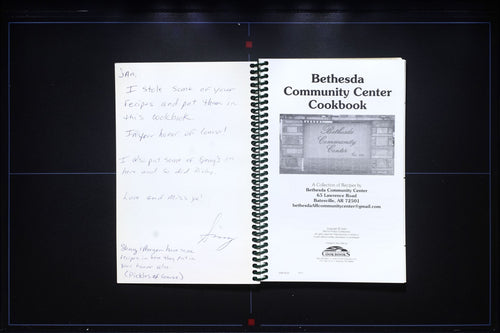 JAN,
I stole some of your
recipes and put them in
this cookbook.
In your honor of course!
I also put some of Granny's in
here and so did Ricky.
Love and Miss ya!
Ginny
have some
recipes in here they put in
your honor also.
(Pickles of course)
Bethesda
Community Center
Cookbook
Bethesda
Community
Center
A Collection of Recipes by
Bethesda Community Center
65 Lawrence Road
Batesville, AR 72501
COOKBOOKS